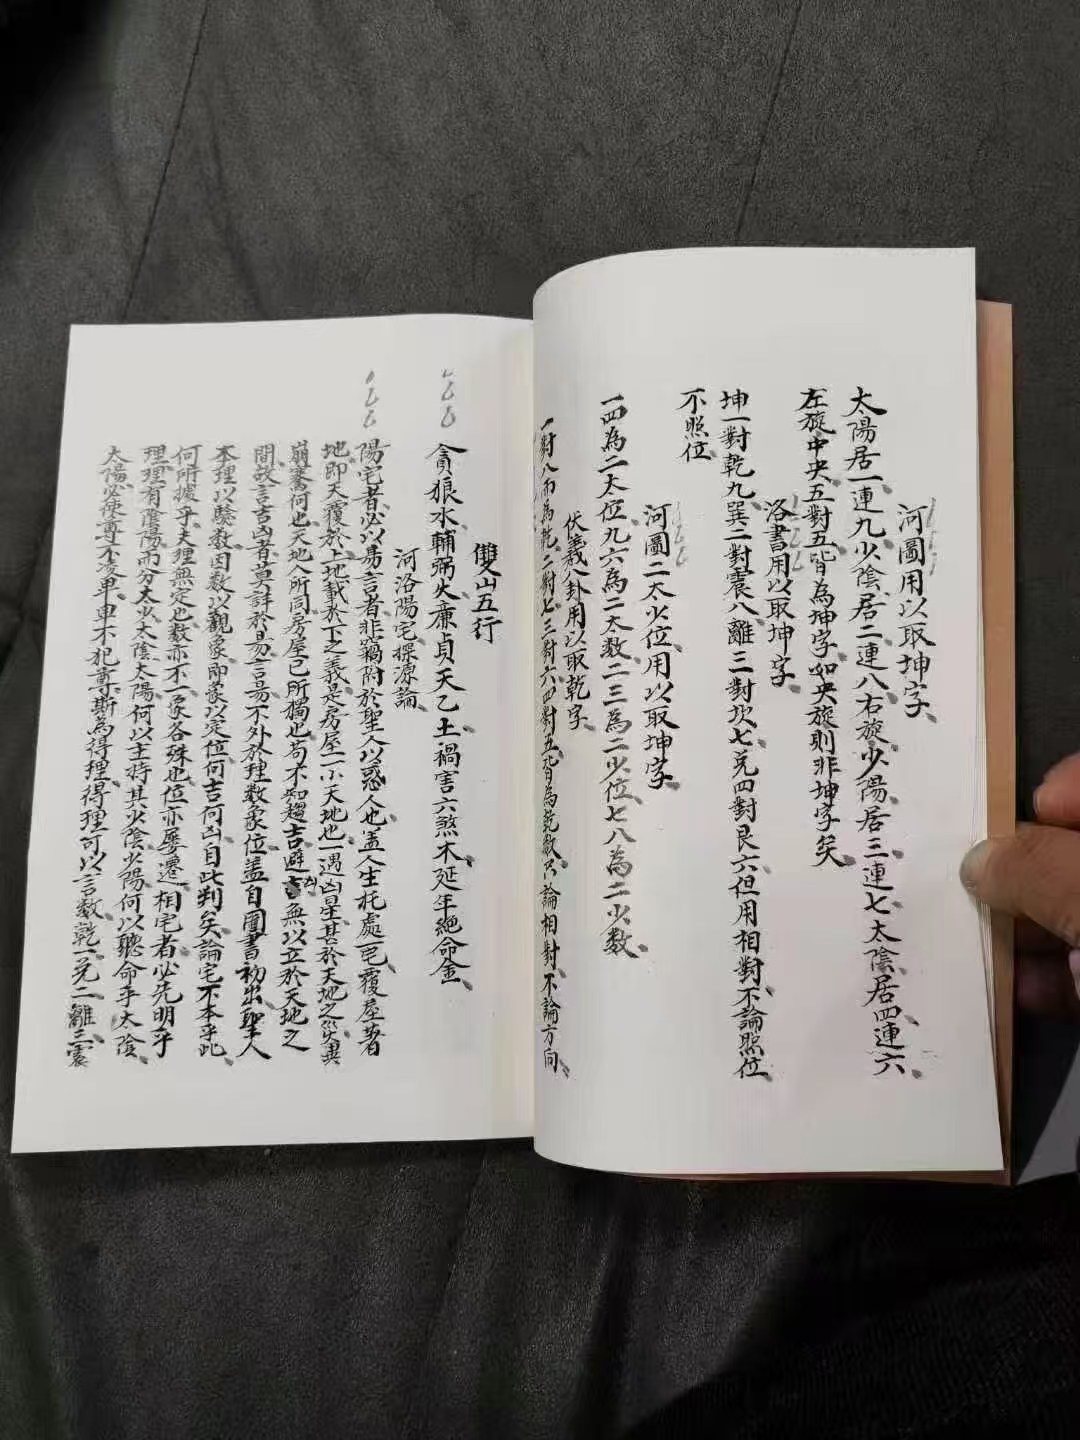 河圖用以取坤字
太陽居一連九少陰居二連八右旋少陽居三連七太陰居四連六
左旋中央五對五皆為坤字如央旋則非坤字矣
洛書用以取坤字
坤一對乾九巽二對震八離三對坎七兌四對艮六但用相對不論照位
不照位
河圖二太少位用以取坤字
一四為二太位九六為二太数二三為二少位七八為二少数
伏羲八卦用以取乾字
一對八而為乾二對七三對六四對五皆為乾数只論相對不論方向
雙山五行
貪狼水輔弼火廉貞天乙土禍害六煞木延年絕命金
河洛陽宅探源論
陽宅者必以易言者非竊附於聖人以惑人也盖人生托處宅覆屋著
地即天覆於上地載於下之義是房屋一小天地也一遇凶星甚於天地之災異
崩騫何也天地人所同房屋已所獨也苟不知趨吉避凶無以立於天地之
間故言吉凶者莫詳於易言易不外於理数象位盖自圖書初出聖人
本理以驗数因数以觀象即象以定位何吉何凶自此判矣論宅不本乎此
何所據乎夫理無定也数亦不一象各殊也位亦屡遷相宅者必先明乎
理理有陰陽而分太少太陰太陽何以主持其少陰少陽何以聽命乎太陰
太陽必使尊不凌卑卑不犯尊斯為得理得理可以言数乾一兌二離三震